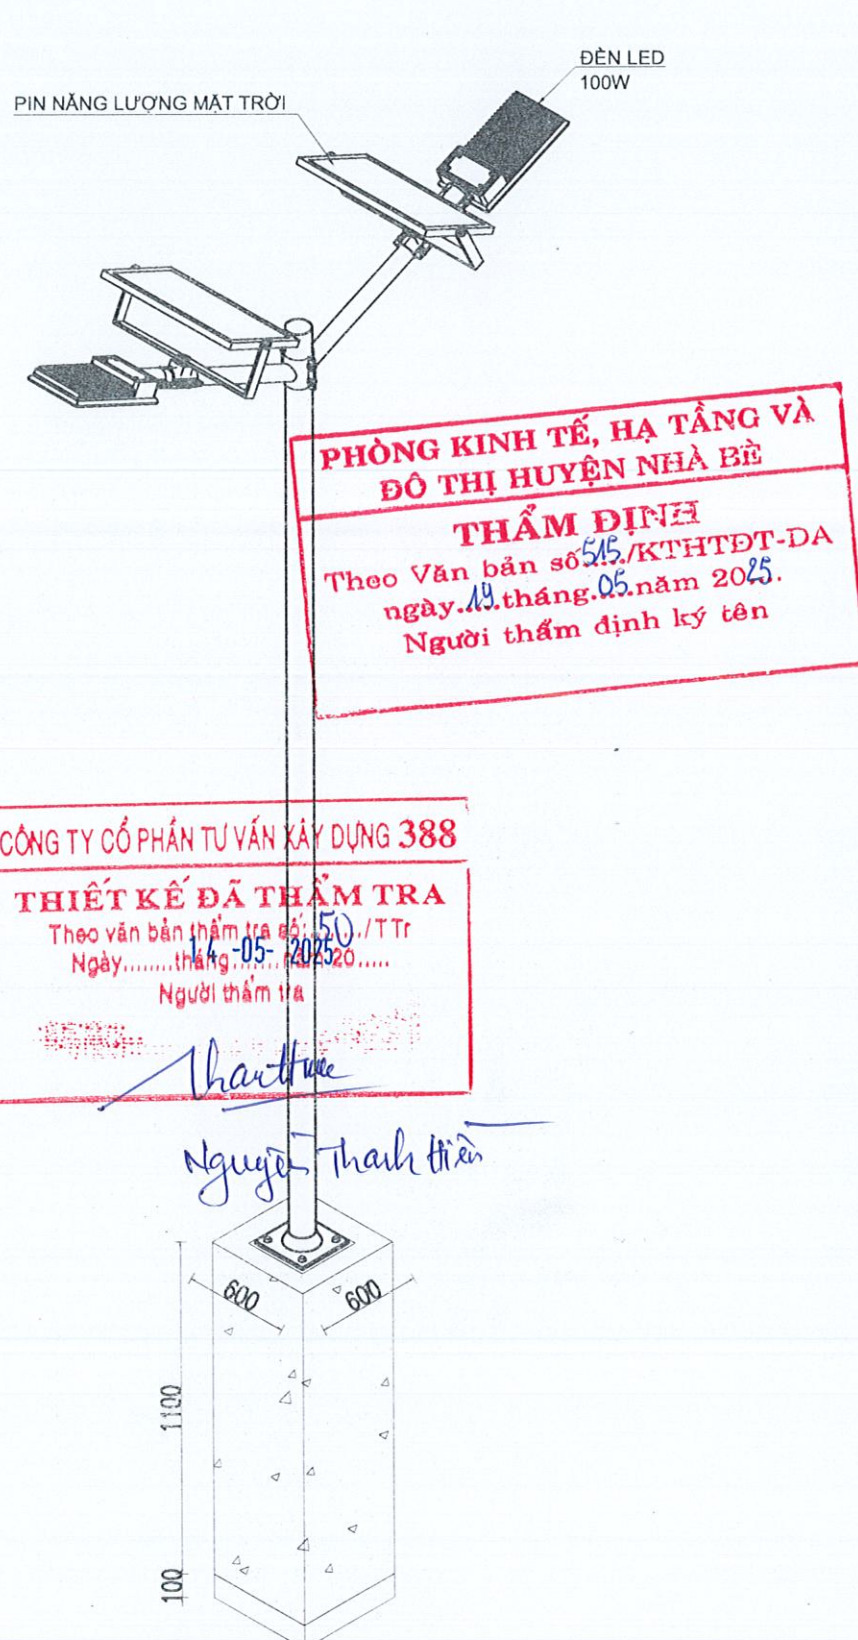 ĐÈN LED
100W
PIN NĂNG LƯỢNG MẶT TRỜI
PHÒNG KINH TẾ, HẠ TẦNG VÀ
ĐÔ THỊ HUYỆN NHÀ BÈ
THẨM ĐỊNH
Theo Văn bản số 515/KTHTĐT-DA
ngày 19 tháng 05 năm 2025.
Người thẩm định ký tên
CÔNG TY CỔ PHẦN TƯ VẤN XÂY DỰNG 388
THIẾT KẾ ĐÃ THẨM TRA
Theo văn bản thẩm tra số: 50/TTr
Ngày........tháng.......năm 20.....
14 -05- 2025
Người thẩm tra
Nguyễn Thanh Hiền
600
600
1100
100